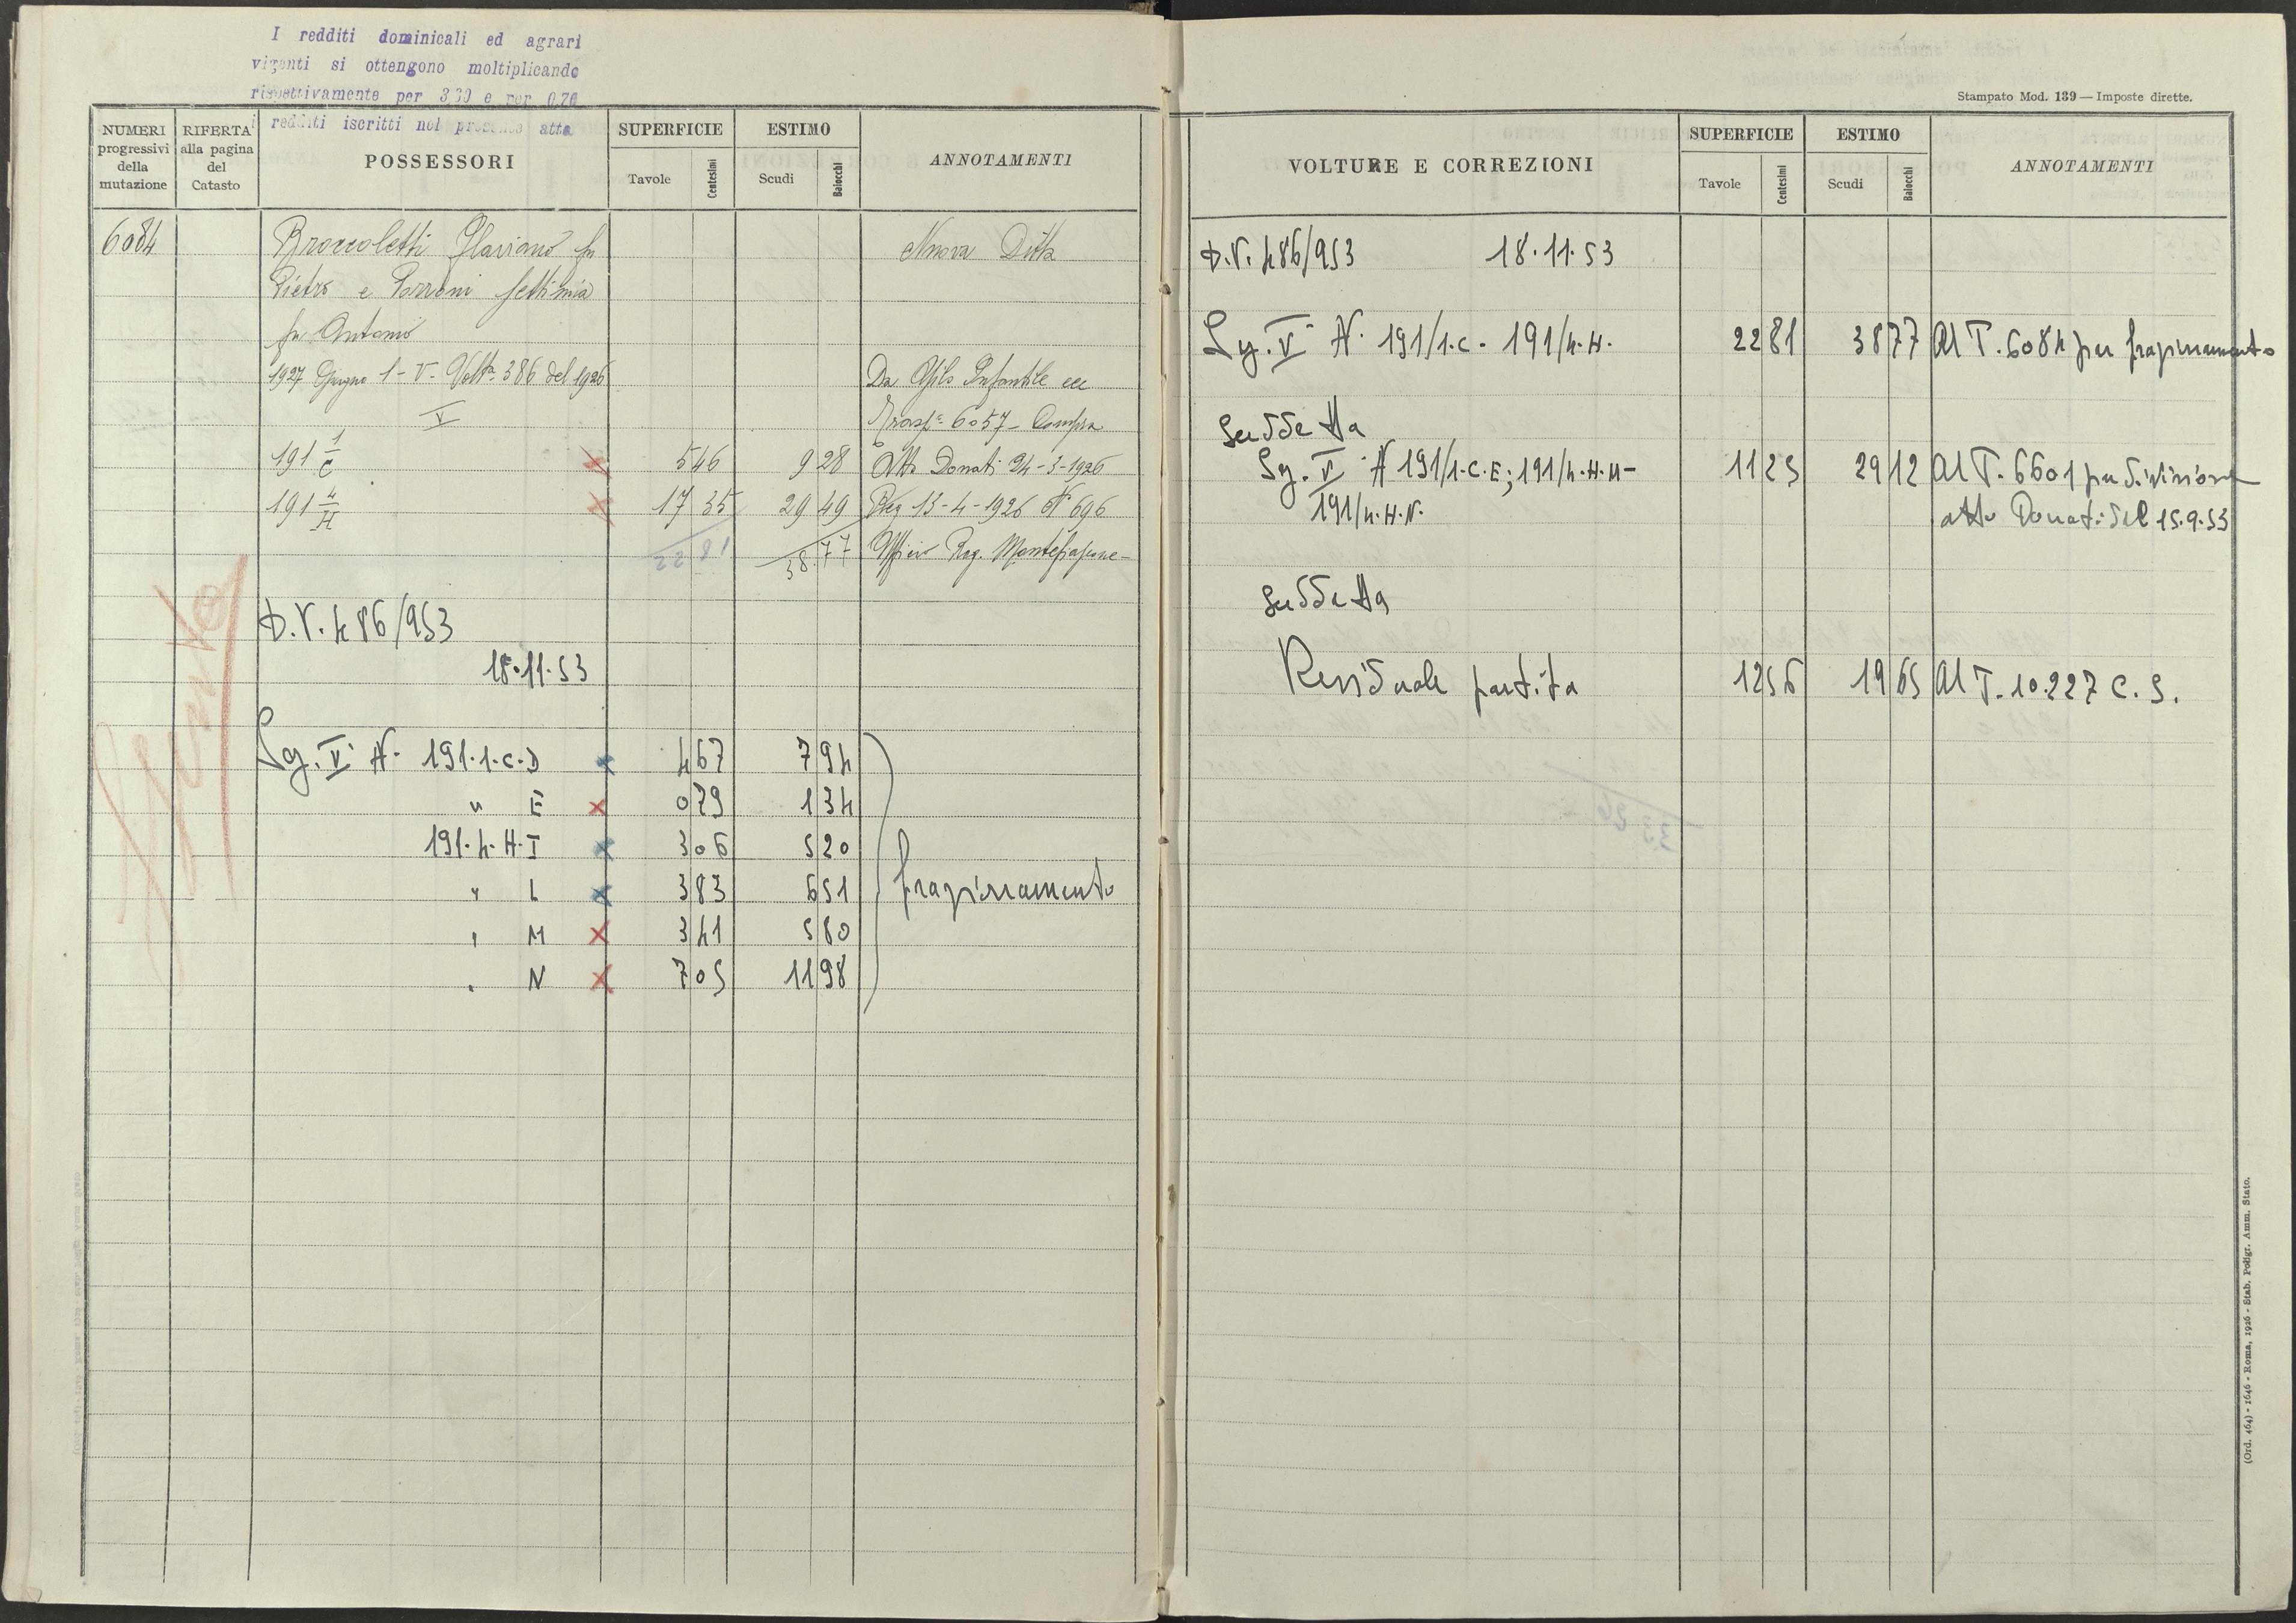 I redditi dominicali ed agrari
vigenti si ottengono moltiplicando
rispettivamente per 3,30 e per 0.70
i redditi iscritti nel presente atto
NUMERI progressivi della mutazione
RIFERTA alla pagina del Catasto
POSSESSORI
SUPERFICIE
Tavole Centesimi
ESTIMO
Scudi Baiocchi
ANNOTAMENTI
6084 Broccoletti Flaviano fu Nuova Ditta
Pietro e Porroni Settimia
fu Antonio
1927 Giugno 1 - V - Volta 386 del 1926 Da Asilo Infantile ecc
V Trasp. 6057 - Compra
191 1/C 5 46 9 28 Atto Donati 24-3-1926
191 4/H 17 35 29 49 Reg 13-4-1926 N 696
22 81 38 77 Ufficio Reg. Montefiascone
D.V. 486/953
18.11.53
Sg. V N. 191.1.C.D 4 67 7 94
" E 0 79 1 34
191.4.H.I 3 06 5 20
" L 3 83 6 51 frazionamento
" M 3 41 5 80
" N 7 05 11 98
Stampato Mod. 139 — Imposte dirette.
VOLTURE E CORREZIONI
SUPERFICIE
Tavole Centesimi
ESTIMO
Scudi Baiocchi
ANNOTAMENTI
D.V. 486/953 18.11.53
Sg. V N. 191/1.C. 191/4.H. 22 81 38 77 Al T. 6084 per frazionamento
Suddetta
Sg. V N 191/1.C.E; 191/4.H.M- 11 25 29 12 Al T. 6601 per divisione
191/4.H.N. atto Donati del 15.9.53
Suddetta
Residuale partita 12 56 19 65 Al T. 10.227 C.S.
(Ord. 464) - 1646 - Roma, 1926 - Stab. Poligr. Amm. Stato.